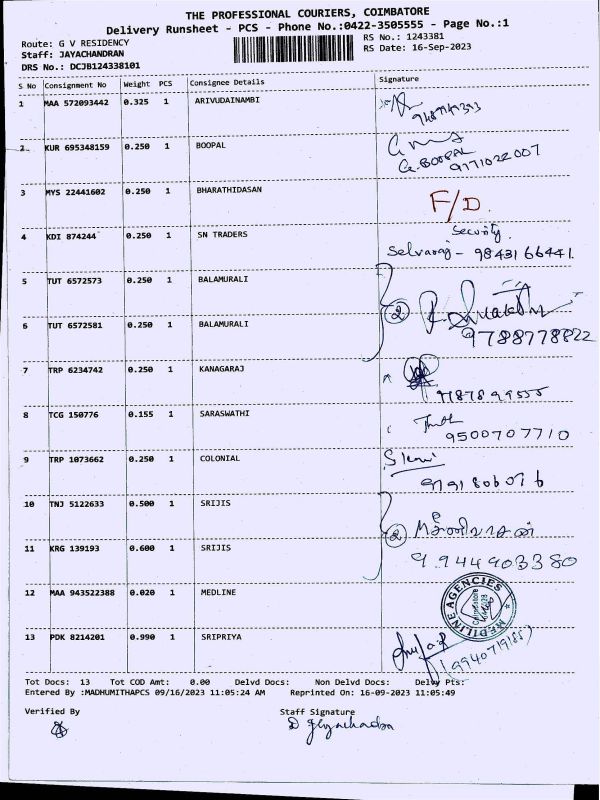 THE PROFESSIONAL COURIERS, COIMBATORE
Delivery Runsheet - PCS - Phone No.:0422-3505555 - Page No.:1
Route: G V RESIDENCY
RS No.: 1243381
Staff: JAYACHANDRAN
RS Date: 16-Sep-2023
DRS No.: DCJB124338101
S No Consignment No Weight PCS Consignee Details Signature
1 MAA 572093442 0.325 1 ARIVUDAINAMBI
2 KUR 695348159 0.250 1 BOOPAL
G. BOOPAL
9171022007
3 MYS 22441602 0.250 1 BHARATHIDASAN F/D.
4 KDI 874244 0.250 1 SN TRADERS Security
Selvaraj - 98431 66441.
5 TUT 6572573 0.250 1 BALAMURALI
2
6 TUT 6572581 0.250 1 BALAMURALI
9788778822
7 TRP 6234742 0.250 1 KANAGARAJ
8 TCG 150776 0.155 1 SARASWATHI
9500707710
9 TRP 1073662 0.250 1 COLONIAL
10 TNJ 5122633 0.500 1 SRIJIS
2
11 KRG 139193 0.600 1 SRIJIS
9.944903380
12 MAA 943522388 0.020 1 MEDLINE
MEDILINE AGENCIES
Coimbatore
13 PDK 8214201 0.990 1 SRIPRIYA
Tot Docs: 13 Tot COD Amt: 0.00 Delvd Docs: Non Delvd Docs: Delvy Pts:
Entered By :MADHUMITHAPCS 09/16/2023 11:05:24 AM Reprinted On: 16-09-2023 11:05:49
Verified By
Staff Signature